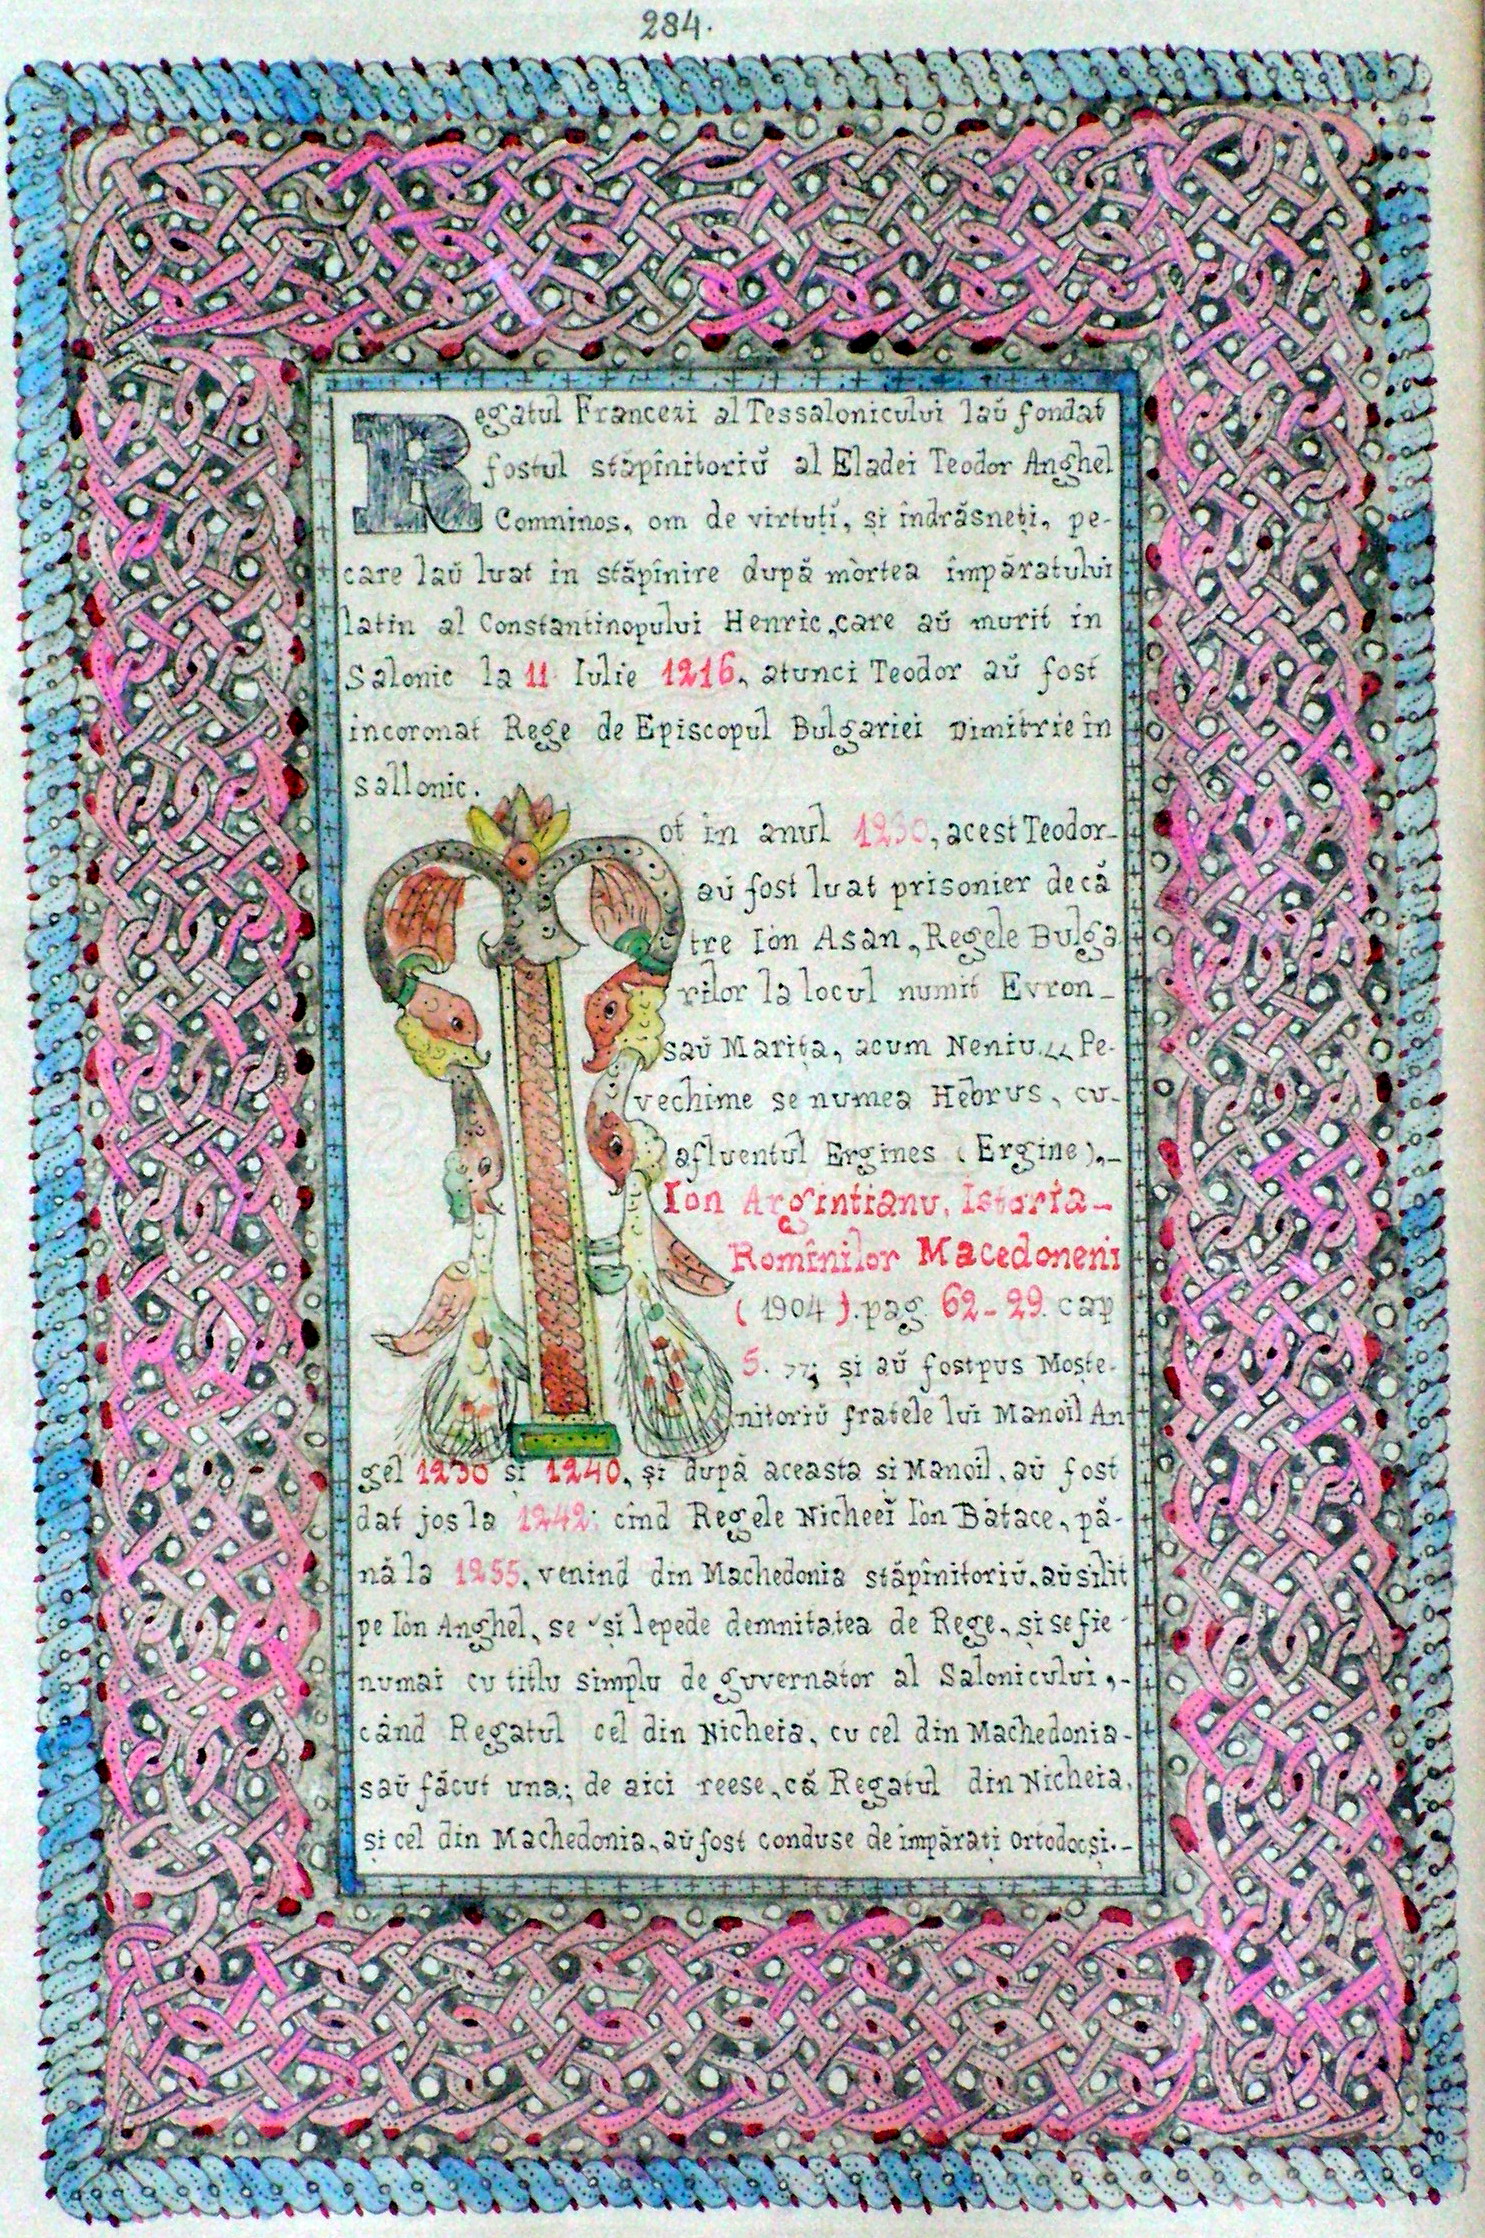 284.
Regatul Francezi al Tessalonicului laŭ fondat
fostul stăpînitoriŭ al Eladei Teodor Anghel
Comninos, om de virtuți, și îndrăsneți, pe-
care laŭ luat în stăpînire după mòrtea împăratului
latin al Constantinopului Henric, care aŭ murit în
Salonic la 11 Iulie 1216, atunci Teodor aŭ fost
incoronat Rege de Episcopul Bulgariei Dimitrie în
sallonic.
Tot în anul 1230, acest Teodor-
aŭ fost luat prisonier decă
tre Iòn Asan, Regele Bulga
rilor la locul numit Evron-
saŭ Marița, acum Neniu. „ Pe-
vechime se numea Hebrus, cu-
afluentul Ergines (Ergine).-
Ion Argințianu, Istoria-
Romînilor Macedoneni
(1904). pag. 62-29. cap
5. ”; și aŭ fost pus Moște-
nitoriŭ fratele lui Manoil An
gel 1230 și 1240, și după aceasta și Manoil, aŭ fost
dat jos la 1242; cînd Regele Nicheeĭ Iòn Batace, pă-
nă la 1255, venind din Machedonia stăpînitoriŭ, aŭ silit
pe Iòn Anghel, se -și lepede demnitatea de Rege, și se fie-
numai cu titlu simplu de guvernator al Salonicului,-
când Regatul cel din Nicheia, cu cel din Machedonia-
saŭ făcut una; de aici reese, că Regatul din Nicheia,
și cel din Machedonia, aŭ fost conduse de împărați ortodocși.-